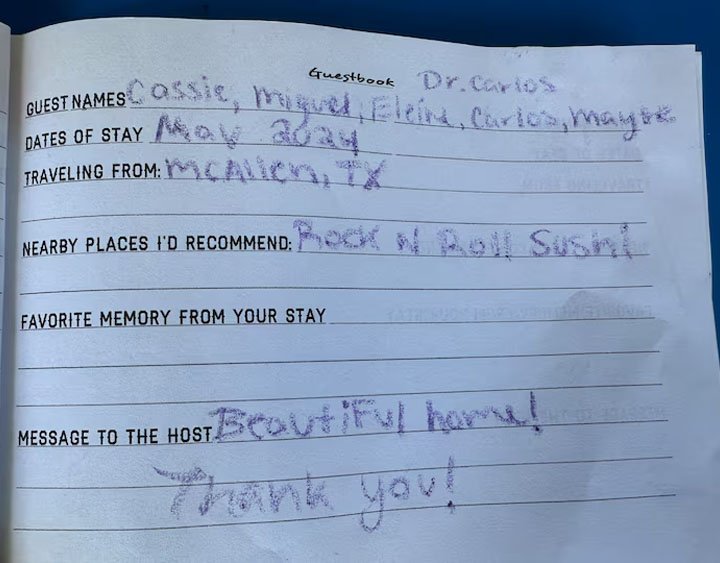 Guestbook
Dr. Carlos
GUEST NAMES Cassie, Miguel, Eleine, Carlos, Mayte
DATES OF STAY May 2024
TRAVELING FROM: McAllen, TX
NEARBY PLACES I'D RECOMMEND: Rock N Roll Sushi
FAVORITE MEMORY FROM YOUR STAY
MESSAGE TO THE HOST Beautiful home!
Thank you!